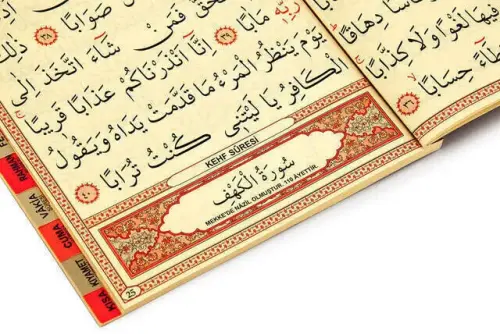 صَوَابًا ﴿٣٨﴾ ذٰلِكَ
فَمَنْ شَٓاءَ اتَّخَذَ اِلٰى
رَبِّه۪ مَاٰبًا ﴿٣٩﴾ اِنَّٓا اَنْذَرْنَاكُمْ عَذَابًا قَر۪يبًا
يَوْمَ يَنْظُرُ الْمَرْءُ مَا قَدَّمَتْ يَدَاهُ وَيَقُولُ
الْكَافِرُ يَا لَيْتَن۪ى كُنْتُ تُرَابًا ﴿٤٠﴾
KEHF SÛRESİ
سُورَةُ الْكَهْفِ
MEKKE'DE NÂZİL OLMUŞTUR. 110 ÂYETTİR.
25
RAHMAN
VAKIA
CUMA
KIYAMET
KISA
دِهَاقًا
ف۪يهَا لَغْوًا وَلَا كِذَّابًا
حِسَابًا ﴿٣٦﴾